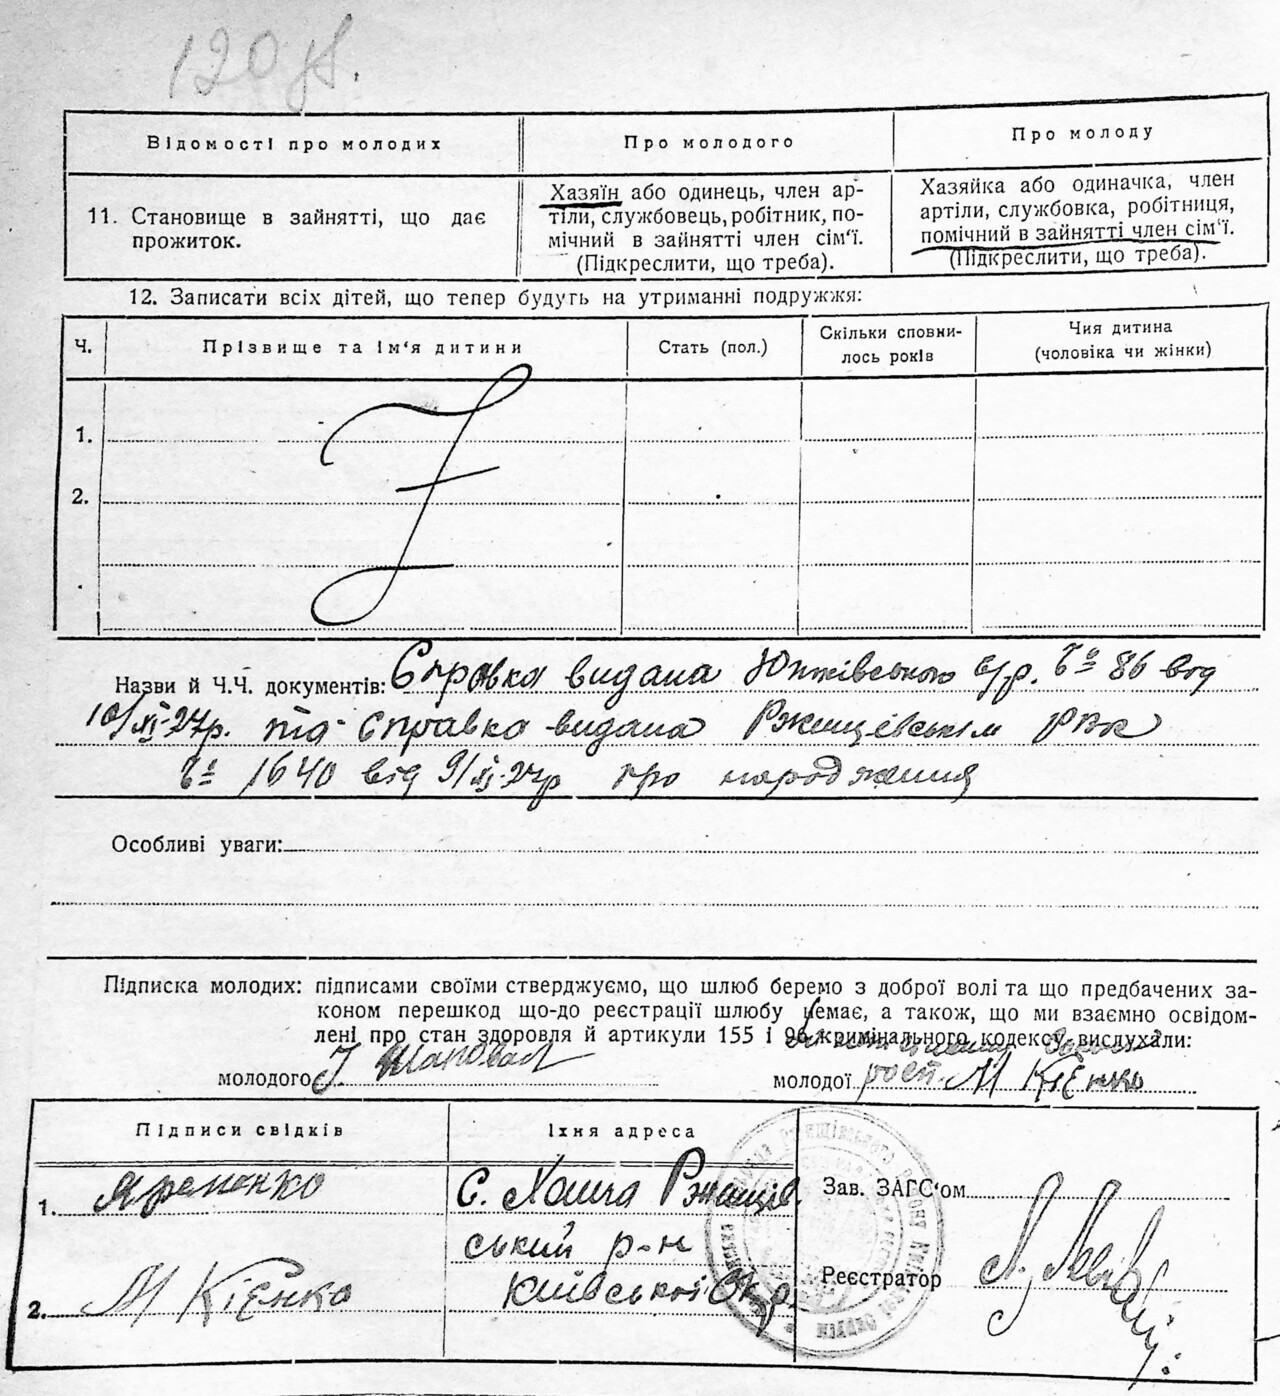 120
Відомості про молодих
Про молодого
Про молоду
11. Становище в зайнятті, що дає
прожиток.
Хазяїн або одинець, член ар-
тіли, службовець, робітник, по-
мічний в зайнятті член сім'ї.
(Підкреслити, що треба).
Хазяйка або одиначка, член
артіли, службовка, робітниця,
помічний в зайнятті член сім'ї.
(Підкреслити, що треба).
12. Записати всіх дітей, що тепер будуть на утриманні подружжя:
Ч.
Прізвище та ім'я дитини
Стать (пол.)
Скільки сповни-
лось років
Чия дитина
(чоловіка чи жінки)
1.
2.
Назви й Ч.Ч. документів: Справка видана с/р. 86 від
10/XI-27р. та справка видана Ржищівським РВК
1640 від 9/XI-27р про народження
Особливі уваги:
Підписка молодих: підписами своїми стверджуємо, що шлюб беремо з доброї волі та що предбачених за-
коном перешкод що-до реєстрації шлюбу немає, а також, що ми взаємно освідом-
лені про стан здоровля й артикули 155 і 96 кримінального кодексу вислухали:
молодого Шаповал
молодої М Кієнко
Підписи свідків
Їхня адреса
1. Яременко
С. Ржищів
ський р-н
Київської Окр.
2. М Кієнко
Зав. ЗАГС'ом
Реєстратор